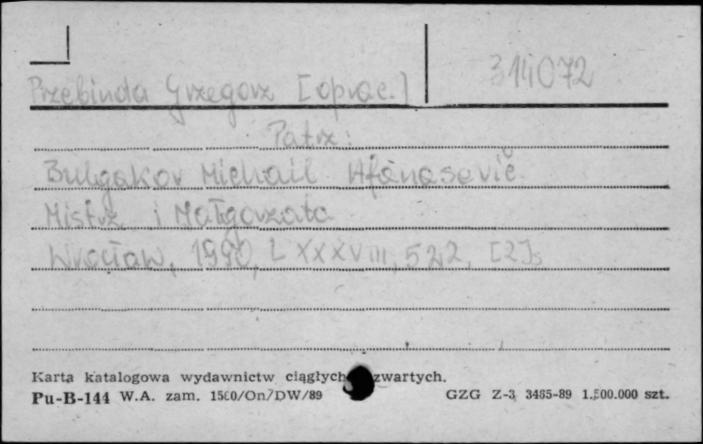 Przebinda Grzegorz [oprac.]
314072
Patrz:
Bulgakov Michail Afanasevič
Mistrz i Małgorzata
Wrocław, 1990, LXXXVIII, 522, [2]s
Karta katalogowa wydawnictw ciągłych zwartych.
Pu-B-144 W.A. zam. 1560/On/DW/89 GZG Z-3 3485-89 1.500.000 szt.